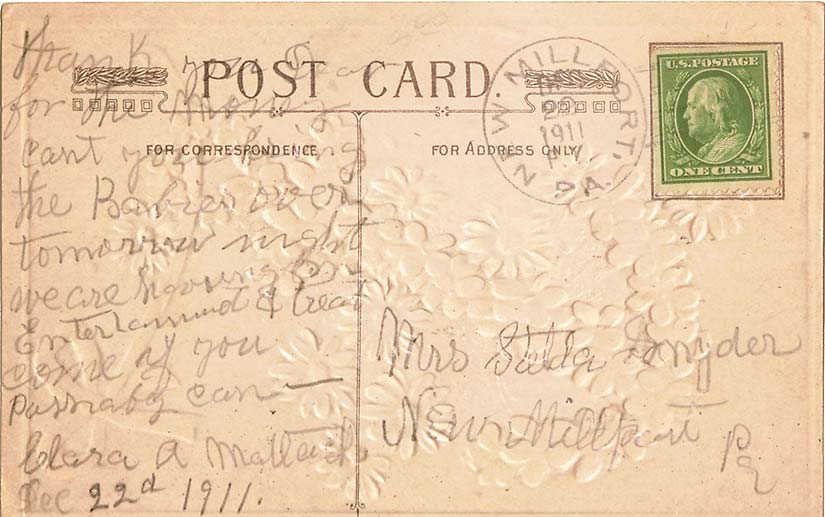 POST CARD.
FOR CORRESPONDENCE
FOR ADDRESS ONLY
NEW MILLPORT, PA.
1911
U.S. POSTAGE
ONE CENT
thank you Dear
for the Money
cant you bring
the Babies over
tomorrow night
we are having an
Entertainment & treat
come if you
Possiably can
Clara A
Dec 22d 1911.
Mrs Stella Snyder
New Millport Pa